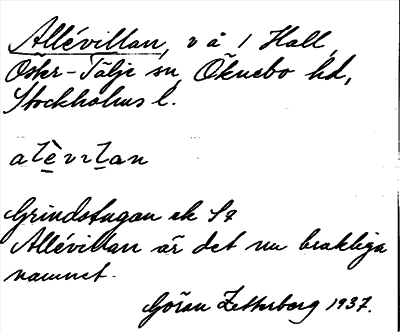 Allévillan, v å 1 Hall,
Öster-Tälje sn, Öknebo hd,
Stockholms l.
alèvilan
Grindstugan ek
Allévillan är det nu brukliga
namnet.
Göran Zetterberg 1937.